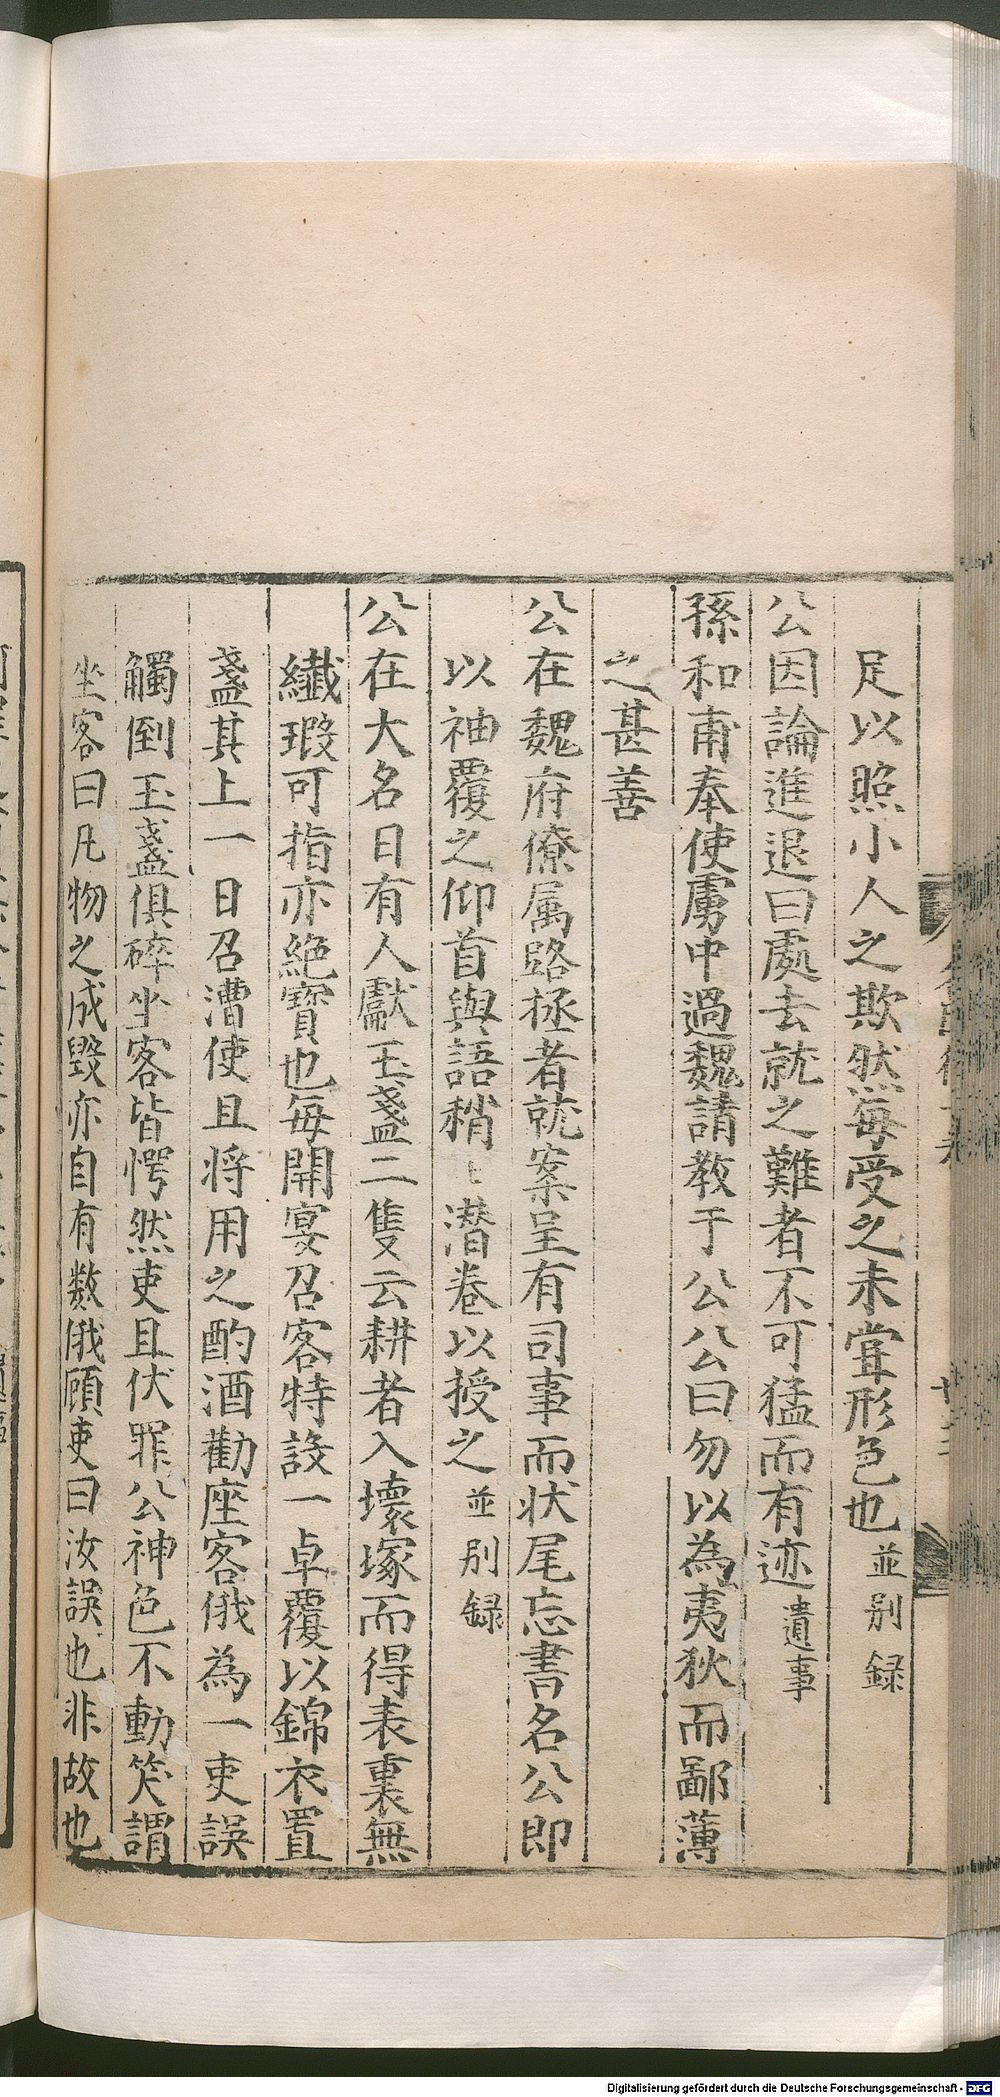 足以照小人之欺然每受之未嘗形色也並别録
公因論進退曰處去就之難者不可猛而有迹遺事
孫和甫奉使虜中過魏請教于公公曰勿以為夷狄而鄙薄
之甚善
公在魏府僚属路拯者就案呈有司事而状尾忘書名公即
以袖覆之仰首與語稍〻潜卷以授之並别録
公在大名日有人獻玉盞二隻云耕者入壞塚而得表裏無
纖瑕可指亦絶寶也每開宴召客特設一卓覆以錦衣置
盞其上一日召漕使且将用之酌酒勸座客俄為一吏誤
觸倒玉盞俱碎坐客皆愕然吏且伏罪公神色不動笑謂
坐客曰凡物之成毀亦自有数俄顧吏曰汝誤也非故也
Digitalisierung gefördert durch die Deutsche Forschungsgemeinschaft - DFG